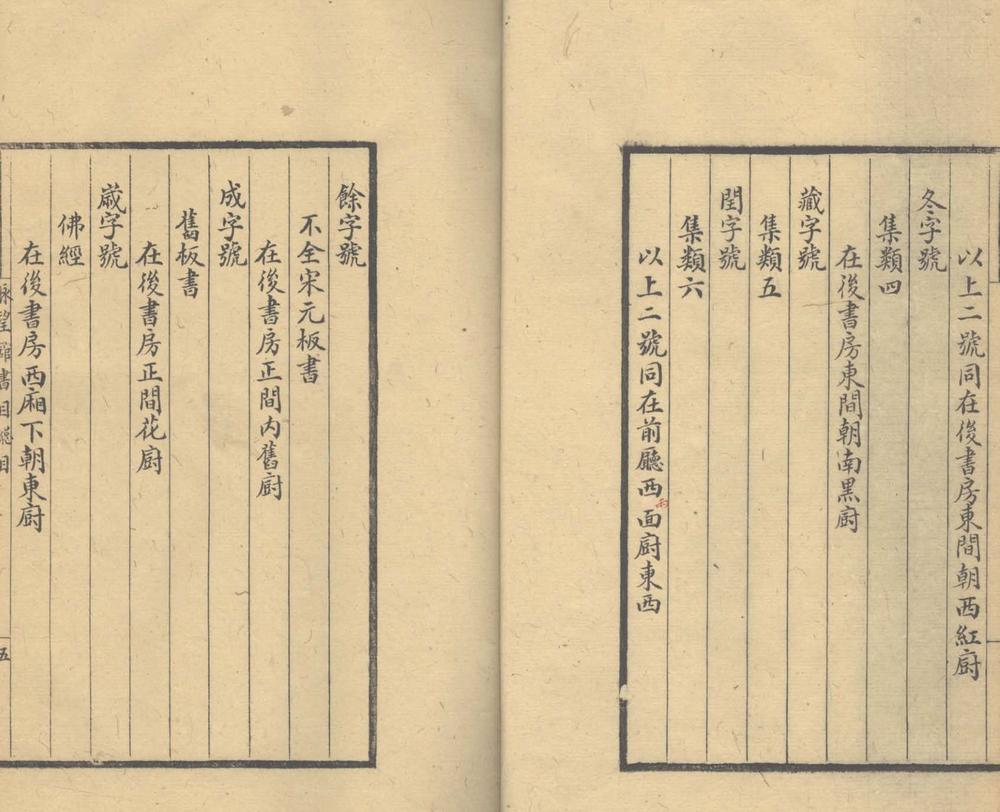 以上二號同在後書房東間朝西紅廚
冬字號
集類四
在後書房東間朝南黑廚
藏字號
集類五
閏字號
集類六
以上二號同在前廳西面廚東西
兩
餘字號
不全宋元板書
在後書房正間内舊廚
成字號
舊板書
在後書房正間花廚
歲字號
佛經
在後書房西廂下朝東廚
五